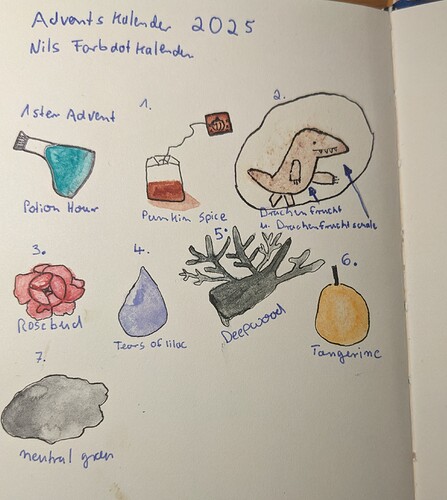 Advents Kalender 2025
Nils Farbdot Kalender
1ster Advent
Potion Hour
1.
Pumkin Spice
2.
Drachenfrucht
u. Drachenfruchtschale
3.
Rosebud
4.
Tears of lilac
5.
Deepwood
6.
Tangerine
7.
neutral gray